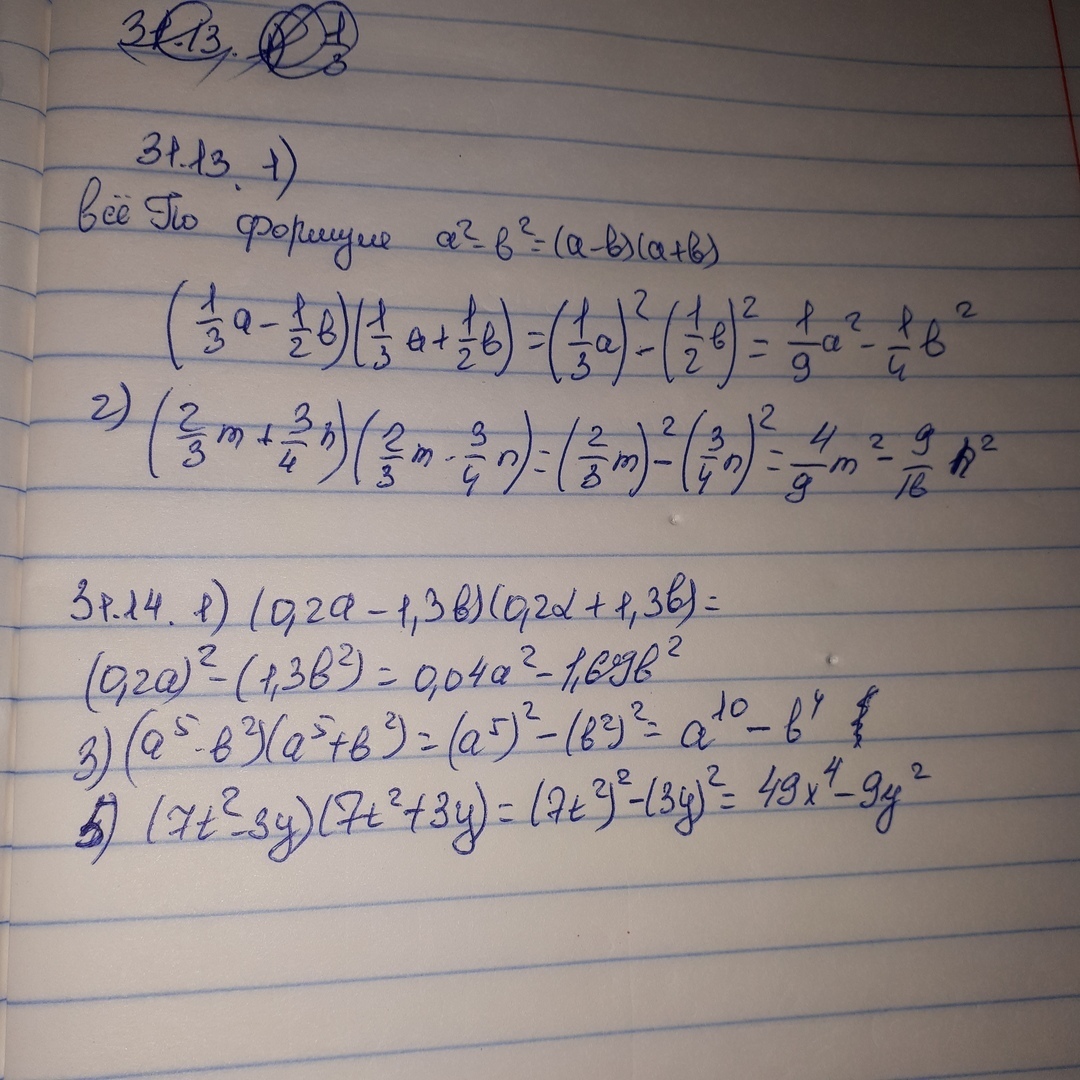 31.13. 1)
всё По формуле a²-b²=(a-b)(a+b)
(1/3 a - 1/2 b)(1/3 a + 1/2 b) = (1/3 a)² - (1/2 b)² = 1/9 a² - 1/4 b²
2) (2/3 m + 3/4 n)(2/3 m - 3/4 n) = (2/3 m)² - (3/4 n)² = 4/9 m² - 9/16 n²
31.14. 1) (0,2a - 1,3b)(0,2a + 1,3b) =
(0,2a)² - (1,3b²) = 0,04a² - 1,69b²
3) (a⁵ - b²)(a⁵ + b²) = (a⁵)² - (b²)² = a¹⁰ - b⁴
5) (7t² - 3y)(7t² + 3y) = (7t²)² - (3y)² = 49x⁴ - 9y²